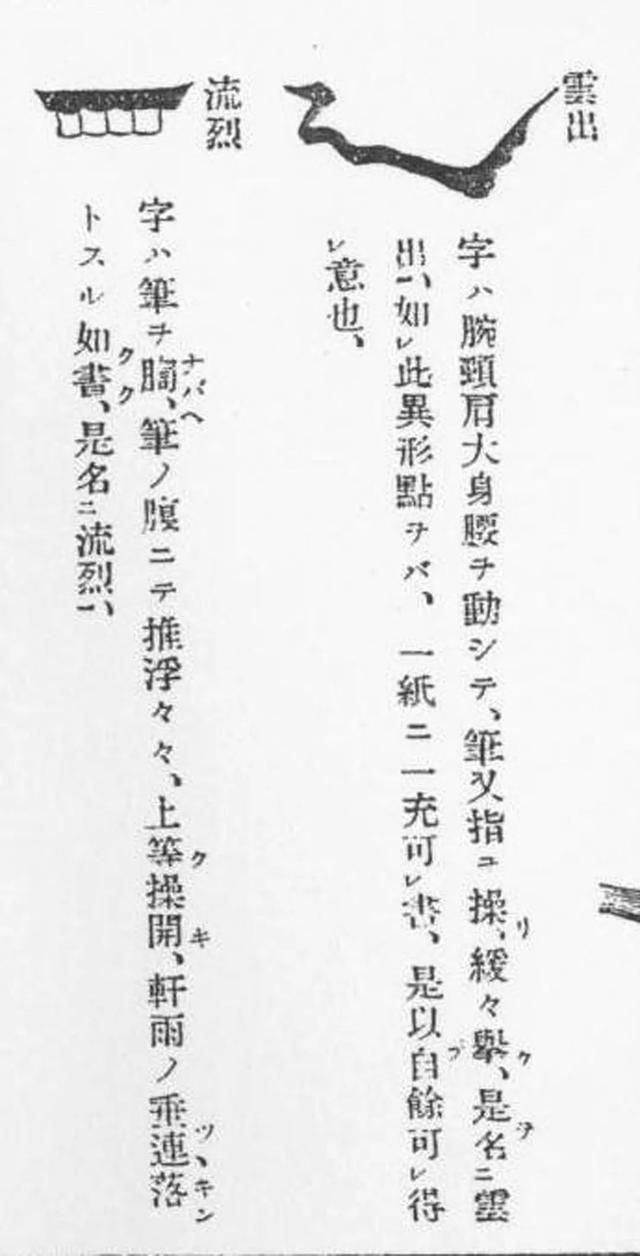 雲出
字ハ腕頸肩大身腰ヲ動シテ、筆又指ニ操リ、緩々擧クヲ、是名ニ雲
出一、如レ此異形點ヲバ、一紙ニ一充可レ書、是以自餘可レ得
レ意也、
流烈
字ハ筆ヲ胸ナバヘ、筆ノ腹ニテ推浮々々、上等ク操開キ、軒雨ノ垂連ツヽ落キン
トスル如クク書、是名ニ流烈一、